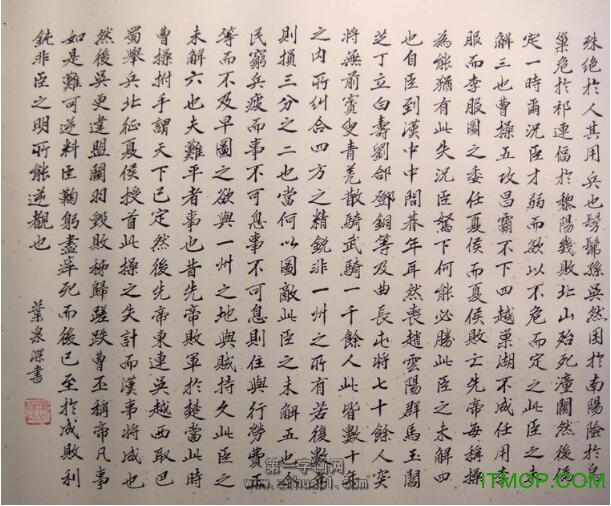 殊絶於人其用兵也髣髴孫吳然困於南陽險於烏
巢危於祁連偪於黎陽幾敗北山殆死潼關然後偽
定一時爾況臣才弱而欲以不危而定之此臣之未
解三也曹操五攻昌霸不下四越巢湖不成任用李
服而李服圖之委任夏侯而夏侯敗亡先帝每稱操
為能猶有此失況臣駑下何能必勝此臣之未解四
也自臣到漢中中間朞年耳然喪趙雲陽群馬玉閻
芝丁立白壽劉郃鄧銅等及曲長屯將七十餘人突
將無前賨叟青羌散騎武騎一千餘人此皆數十年
之內所糾合四方之精銳非一州之所有若復數年
則損三分之二也當何以圖敵此臣之未解五也今
民窮兵疲而事不可息事不可息則住與行勞費正
等而不及早圖之欲與一州之地與賊持久此臣之
未解六也夫難平者事也昔先帝敗軍於楚當此時
曹操拊手謂天下已定然後先帝東連吳越西取巴
蜀舉兵北征夏侯授首此操之失計而漢事將成也
然後吳更違盟關羽毀敗秭歸蹉跌曹丕稱帝凡事
如是難可逆料臣鞠躬盡瘁死而後已至於成敗利
鈍非臣之明所能逆覩也
葉泉深書
第一字画网
www.zihua01.com
ITMOP.COM